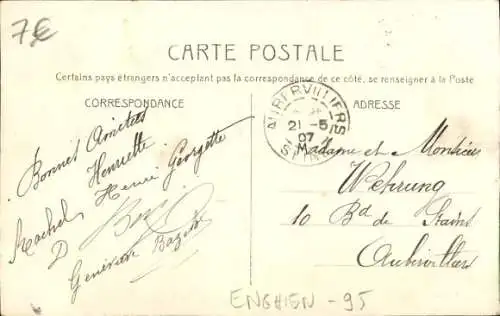 7€
CARTE POSTALE
Certains pays étrangers n'acceptant pas la correspondance de ce côté, se renseigner à la Poste
CORRESPONDANCE
ADRESSE
AUBERVILLIERS
21 -5
07
SEINE
Bonnes Amitiés
Henriette
Rachel Henri Georgette
D
Geneviève
Madame et Monsieur
Wehrung
10 Bd de Stains
Aubervilliers
ENGHIEN - 95